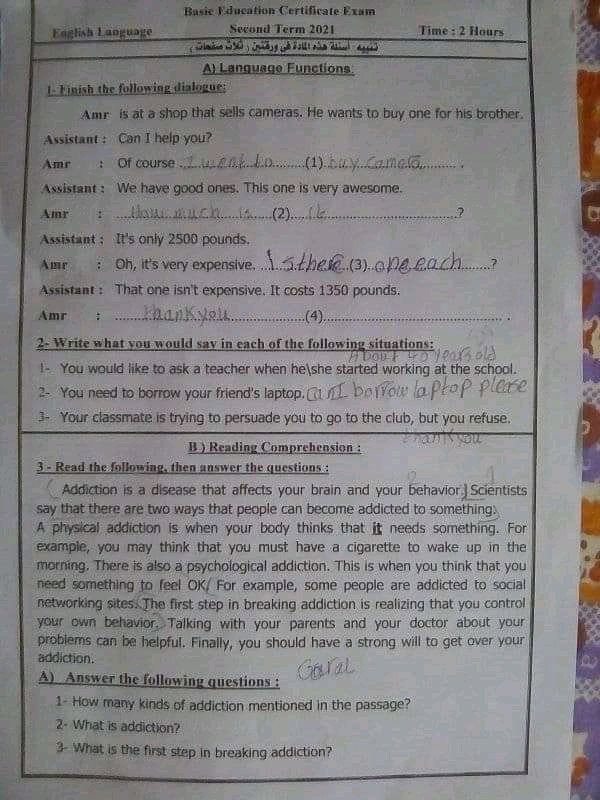 Basic Education Certificate Exam
English Language Second Term 2021 Time : 2 Hours
تنبيه : أسئلة هذه المادة فى ورقتين ( ثلاث صفحات )
A) Language Functions:
1- Finish the following dialogue:
Amr is at a shop that sells cameras. He wants to buy one for his brother.
Assistant : Can I help you?
Amr : Of course ..I want to........(1) buy camera........ .
Assistant : We have good ones. This one is very awesome.
Amr : ...How much is....(2)....it..............................?
Assistant : It's only 2500 pounds.
Amr : Oh, it's very expensive. ..Is there..(3)..one each.......?
Assistant : That one isn't expensive. It costs 1350 pounds.
Amr : .....thank you..................(4)............................................ .
2- Write what you would say in each of the following situations:
About 40 years old
1- You would like to ask a teacher when he\she started working at the school.
2- You need to borrow your friend's laptop. can I borrow laptop please
3- Your classmate is trying to persuade you to go to the club, but you refuse.
thank you
B ) Reading Comprehension :
3 - Read the following, then answer the questions :
Addiction is a disease that affects your brain and your behavior. Scientists
say that there are two ways that people can become addicted to something.
A physical addiction is when your body thinks that it needs something. For
example, you may think that you must have a cigarette to wake up in the
morning. There is also a psychological addiction. This is when you think that you
need something to feel OK. For example, some people are addicted to social
networking sites. The first step in breaking addiction is realizing that you control
your own behavior. Talking with your parents and your doctor about your
problems can be helpful. Finally, you should have a strong will to get over your
addiction.
A) Answer the following questions :
1- How many kinds of addiction mentioned in the passage?
2- What is addiction?
3- What is the first step in breaking addiction?